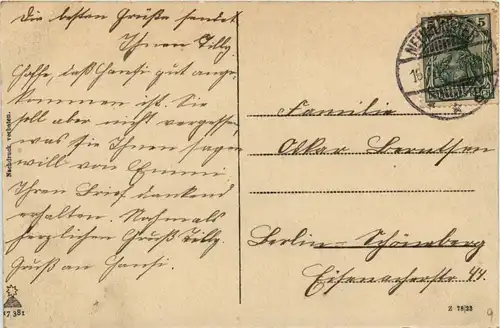 Die besten Grüße sendet
Ihnen Tilly.
Hoffe, daß Hansi gut ange-
kommen ist. Sie
soll aber nicht vergessen
was sie Ihnen sagen
will von Emmi.
Ihren Brief dankend
erhalten. Nochmals
herzlichen Gruß Tilly.
Gruß an Hansi.
Nachdruck verboten.
17381
5
NEUMÜNSTER
Familie
Oskar Berntsen
Berlin-Schöneberg
Eisenacherstr 44.
Z 78/23
9